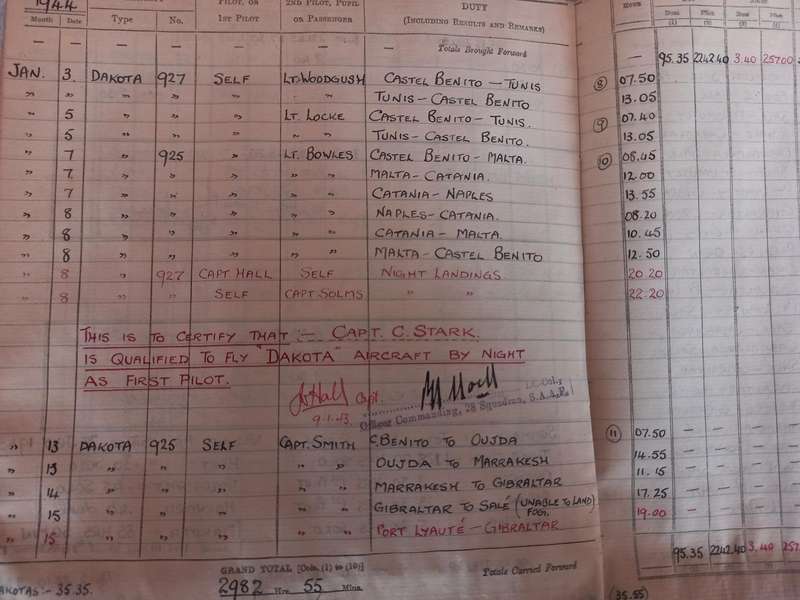 1944 PILOT, OR 2ND PILOT, PUPIL DUTY Hour
Month Date Type No. 1ST PILOT OR PASSENGER (INCLUDING RESULTS AND REMARKS) Dual Pilot Dual Pilot
(1) (2) (3) (4)
— — — — — — Totals Brought Forward — 95.35 2242.40 3.40 257.00
JAN. 3. DAKOTA 927 SELF LT. WOODGUSH CASTEL BENITO — TUNIS (8) 07.50
" " " " " " TUNIS — CASTEL BENITO 13.05
" 5 " " " LT. LOCKE CASTEL BENITO — TUNIS. (9) 07.40
" 5 " " " " TUNIS — CASTEL BENITO. 13.05
" 7 " 925 " LT. BOWLES CASTEL BENITO — MALTA. (10) 08.45
" 7. " " " " " MALTA — CATANIA. 12.00
" 7 " " " " " CATANIA — NAPLES 13.55
" 8 " " " " " NAPLES — CATANIA. 08.20
" 8 " " " " " CATANIA — MALTA. 10.45
" 8 " " " " " MALTA — CASTEL BENITO 12.50
" 8 " 927 CAPT. HALL SELF NIGHT LANDINGS 20.20
" 8 " " SELF CAPT. SOLMS " " 22.20
THIS IS TO CERTIFY THAT :— CAPT. C. STARK.
IS QUALIFIED TO FLY "DAKOTA" AIRCRAFT BY NIGHT
AS FIRST PILOT.
Hall Capt.
9.1.43. Lt. Col.,
Officer Commanding, 28 Squadron, S.A.A.F.
" 13 DAKOTA 925 SELF CAPT. SMITH C. BENITO TO OUJDA (11) 07.50 — — — —
" 13 " " " " " OUJDA TO MARRAKESH 14.55 — — — —
" 14 " " " " " MARRAKESH TO GIBRALTAR 11.15 — — — —
" 15 " " " " " GIBRALTAR TO SALÉ (UNABLE TO LAND) FOG. 17.25 — — — —
" 15 " " " " " PORT LYAUTÉ — GIBRALTAR 19.00 — — — —
GRAND TOTAL [Cols. (1) to (10)] Totals Carried Forward 95.35 2242.40 3.40 257
2982 Hrs. 55 Mins.
DAKOTAS:- 35.35. (35.55)